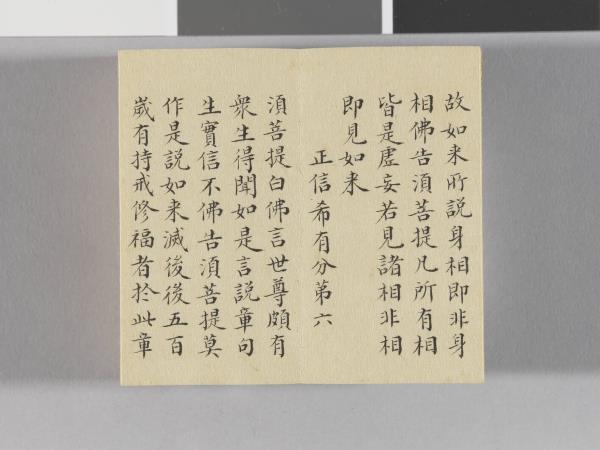 故如来所說身相即非身
相佛告湏菩提凡所有相
皆是虗妄若見諸相非相
即見如来
正信希有分第六
湏菩提白佛言世尊頗有
衆生得聞如是言說章句
生實信不佛告湏菩提莫
作是說如来滅後後五百
歲有持戒修福者扵此章